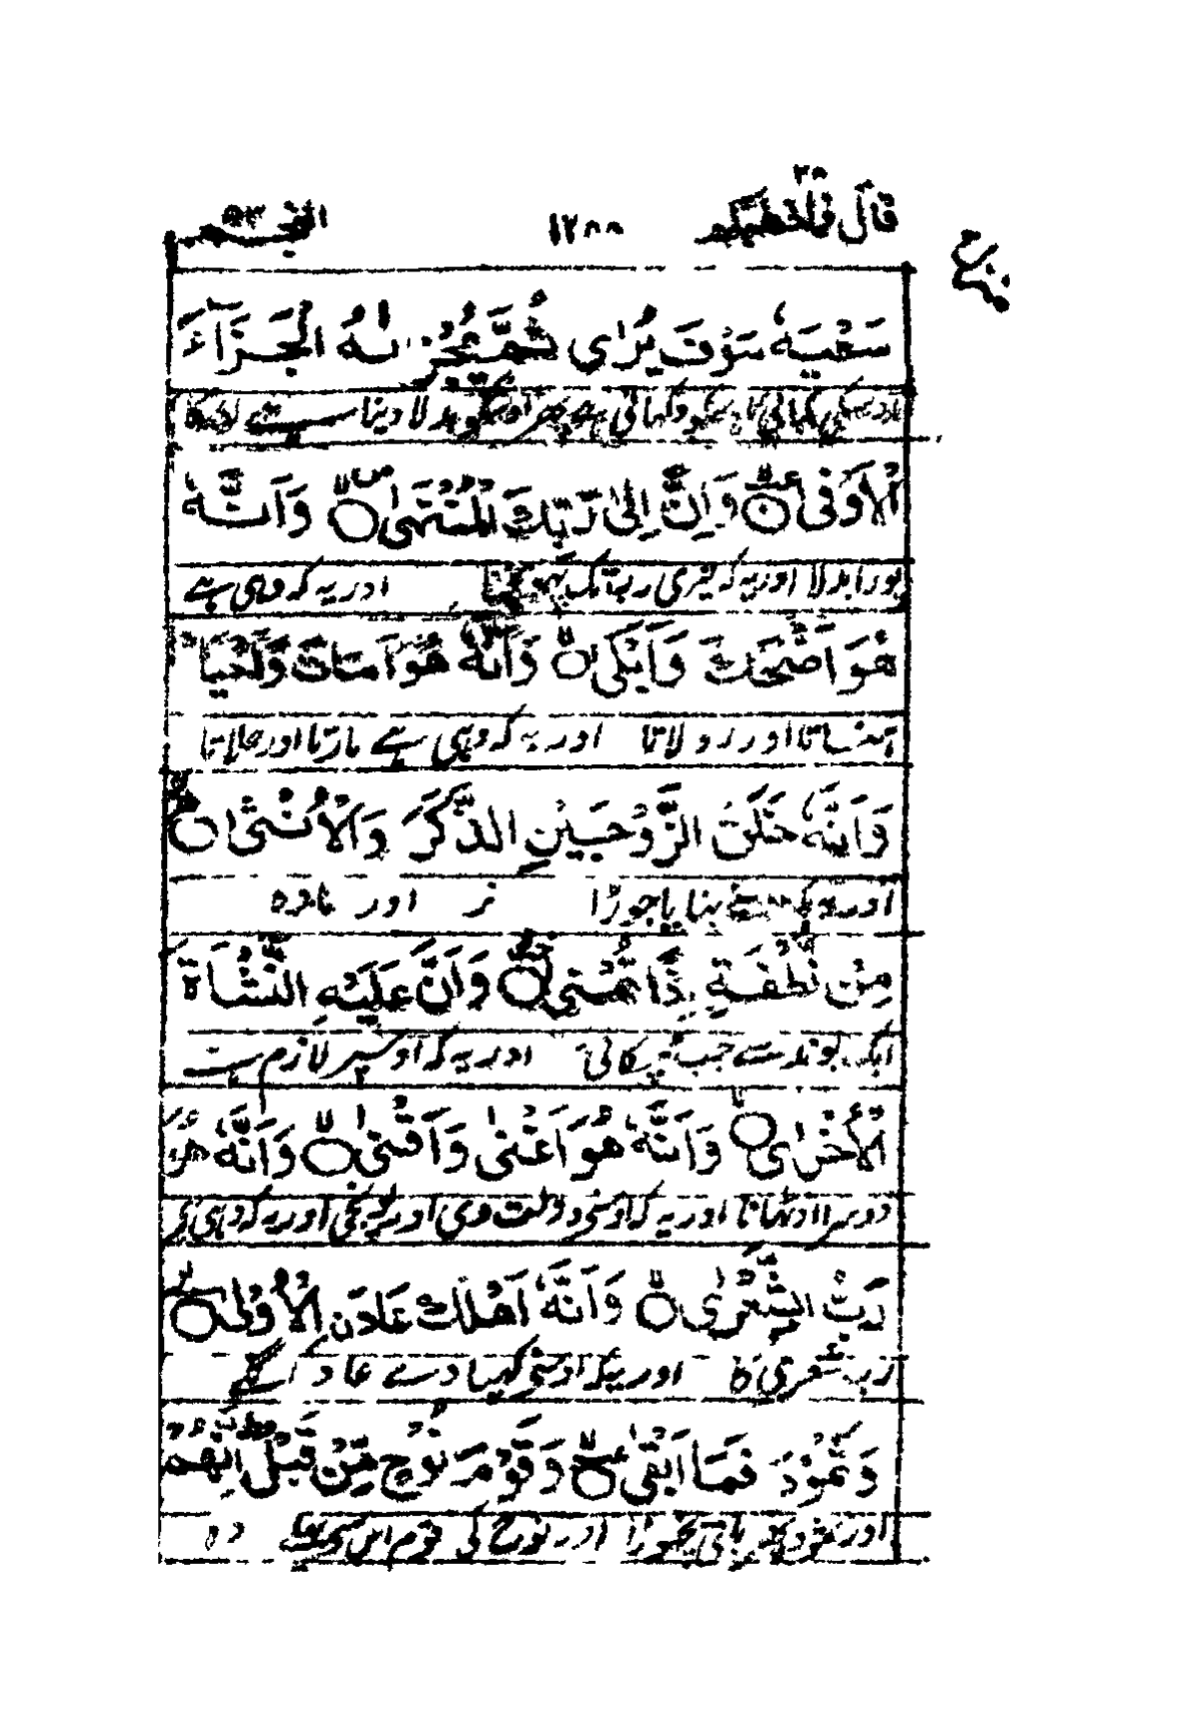 قال فما خطبکم ٢٧ ١٢٨٨ النجم ٥٣
سَعْيَهٗ سَوْفَ يُرٰى ثُمَّ يُجْزٰىهُ الْجَزَآءَ
کمائی اوسکو دکھانی ہے پھر اوسکو بدلا دینا ہے
الْاَوْفٰى وَاَنَّ اِلٰى رَبِّكَ الْمُنْتَهٰى وَاَنَّهٗ
پورا بدلا اور یہ کہ تیری رب تک پہونچنا اور یہ کہ وہی ہے
هُوَ اَضْحَكَ وَاَبْكٰى وَاَنَّهٗ هُوَ اَمَاتَ وَاَحْيَا
ہنساتا اور رولاتا اور یہ کہ وہی ہے مارتا اور جلاتا
وَاَنَّهٗ خَلَقَ الزَّوْجَيْنِ الذَّكَرَ وَالْاُنْثٰى
اور یہ کہ اوسنے بنایا جوڑا نر اور مادہ
مِنْ نُّطْفَةٍ اِذَا تُمْنٰى وَاَنَّ عَلَيْهِ النَّشْاَةَ
ایک بوند سے جب ٹپکائی اور یہ کہ اوسپر لازم ہے
الْاُخْرٰى وَاَنَّهٗ هُوَ اَغْنٰى وَاَقْنٰى وَاَنَّهٗ هُوَ
دوسرا اوٹھانا اور یہ کہ اوسنے دولت دی اور پونجی اور یہ کہ وہی ہے
رَبُّ الشِّعْرٰى وَاَنَّهٗ اَهْلَكَ عَادَنِ الْاُوْلٰى
رب شعری کا اور یہ کہ اوسنے کھپا دے عاد اگلے
وَثَمُوْدَ فَمَا اَبْقٰى وَقَوْمَ نُوْحٍ مِّنْ قَبْلُ اِنَّهُمْ
اور ثمود پھر باقی نچھوڑا اور نوح کی قوم اس سے پہلے وہ